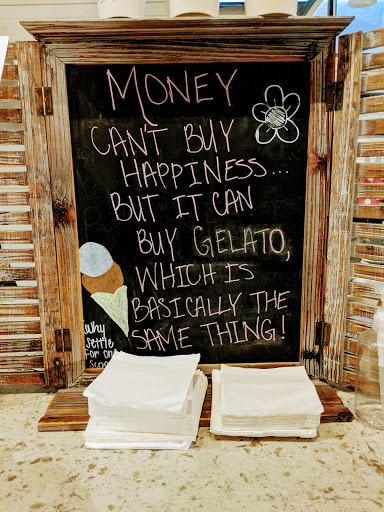 MONEY
CAN'T BUY
HAPPINESS...
BUT IT CAN
BUY GELATO,
WHICH IS
BASICALLY THE
SAME THING!
Why
settle
for